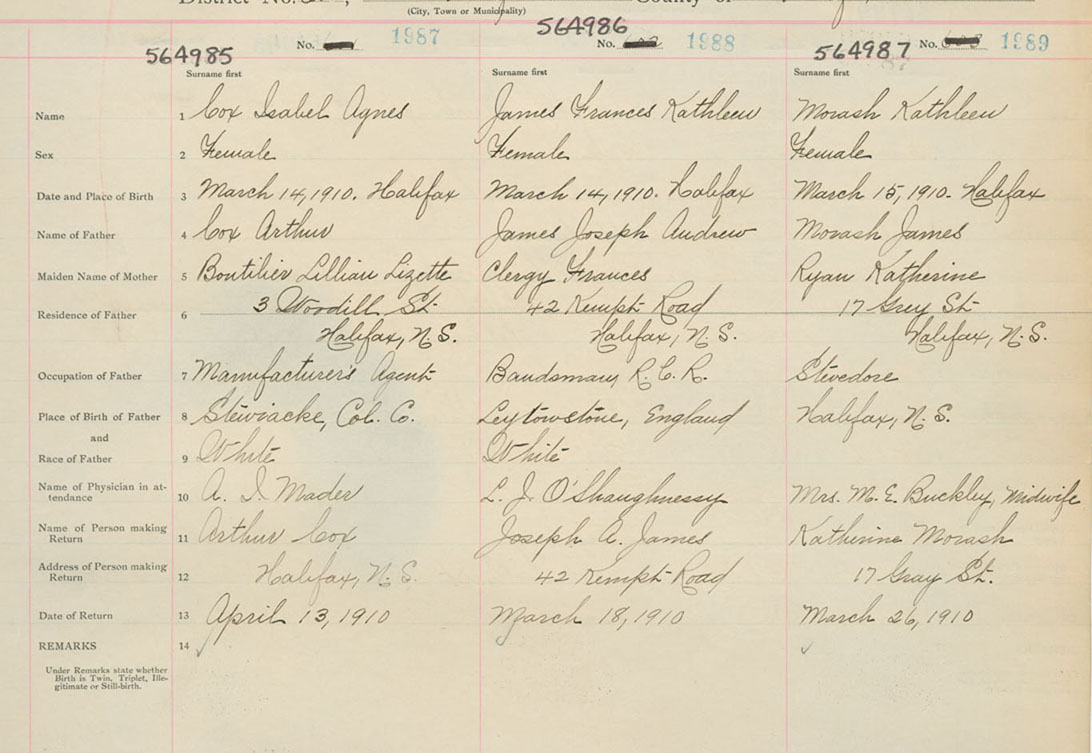 District No.
County of
(City, Town or Municipality)
564985 No. 1987 564986 No. 1988 564987 No. 1989
Surname first Surname first Surname first
Name 1 Cox Isabel Agnes James Frances Kathleen Morash Kathleen
Sex 2 Female Female Female
Date and Place of Birth 3 March 14, 1910. Halifax March 14, 1910. Halifax March 15, 1910. Halifax
Name of Father 4 Cox Arthur James Joseph Andrew Morash James
Maiden Name of Mother 5 Boutilier Lillian Lizette Clergy Frances Ryan Katherine
Residence of Father 6 3 Woodill St 42 Kempt Road 17 Grey St
Halifax, N.S. Halifax, N.S. Halifax, N.S.
Occupation of Father 7 Manufacturer's Agent Bandsman, R.C.R. Stevedore
Place of Birth of Father 8 Stewiacke, Col. Co. Leytowstone, England Halifax, N.S.
and
Race of Father 9 White White
Name of Physician in at-
tendance 10 A. I. Mader L. J. O'Shaughnessy Mrs. M. E. Buckley, Midwife
Name of Person making
Return 11 Arthur Cox Joseph A. James Katherine Morash
Address of Person making
Return 12 Halifax, N.S. 42 Kempt Road 17 Gray St.
Date of Return 13 April 13, 1910 March 18, 1910 March 26, 1910
REMARKS 14
Under Remarks state whether
Birth is Twin, Triplet, Ille-
gitimate or Still-birth.